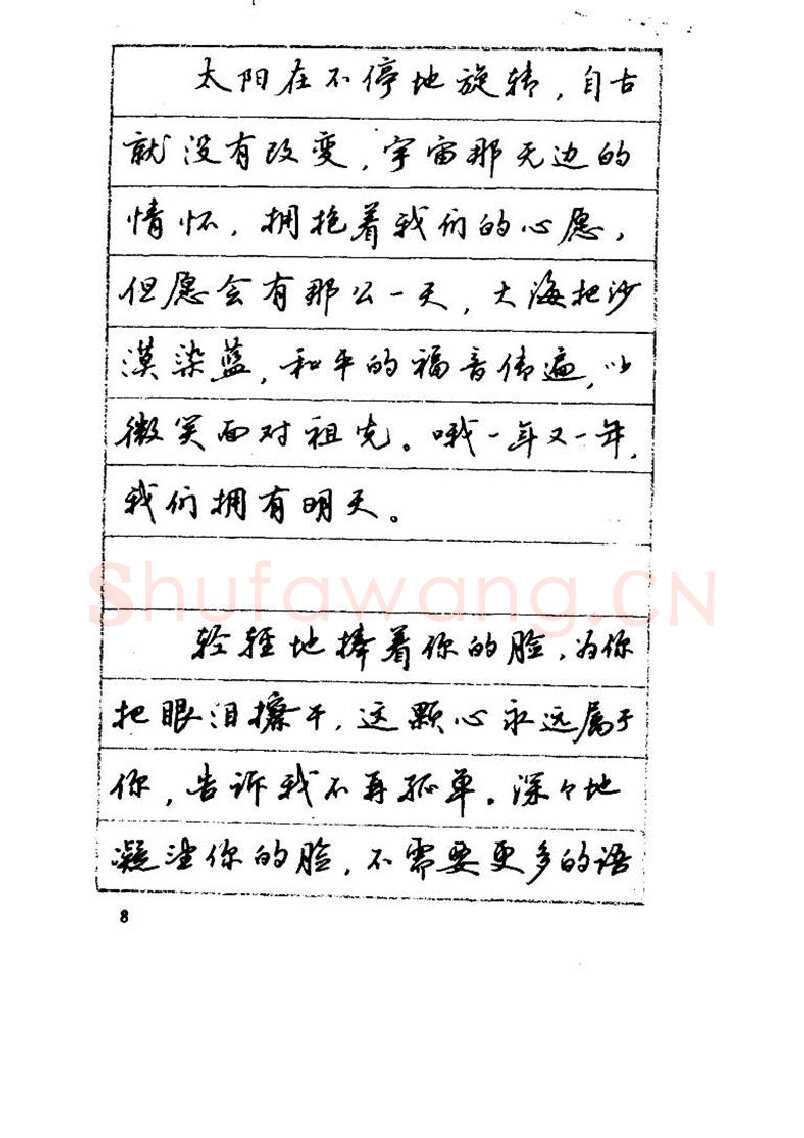 太阳在不停地旋转，自古
就没有改变，宇宙那无边的
情怀，拥抱着我们的心愿，
但愿会有那么一天，大海把沙
漠染蓝，和平的福音传遍，以
微笑面对祖先。哦一年又一年，
我们拥有明天。
Shufawang.CN
轻轻地捧着你的脸，为你
把眼泪擦干，这颗心永远属于
你，告诉我不再孤单。深々地
凝望你的脸，不需要更多的语
8